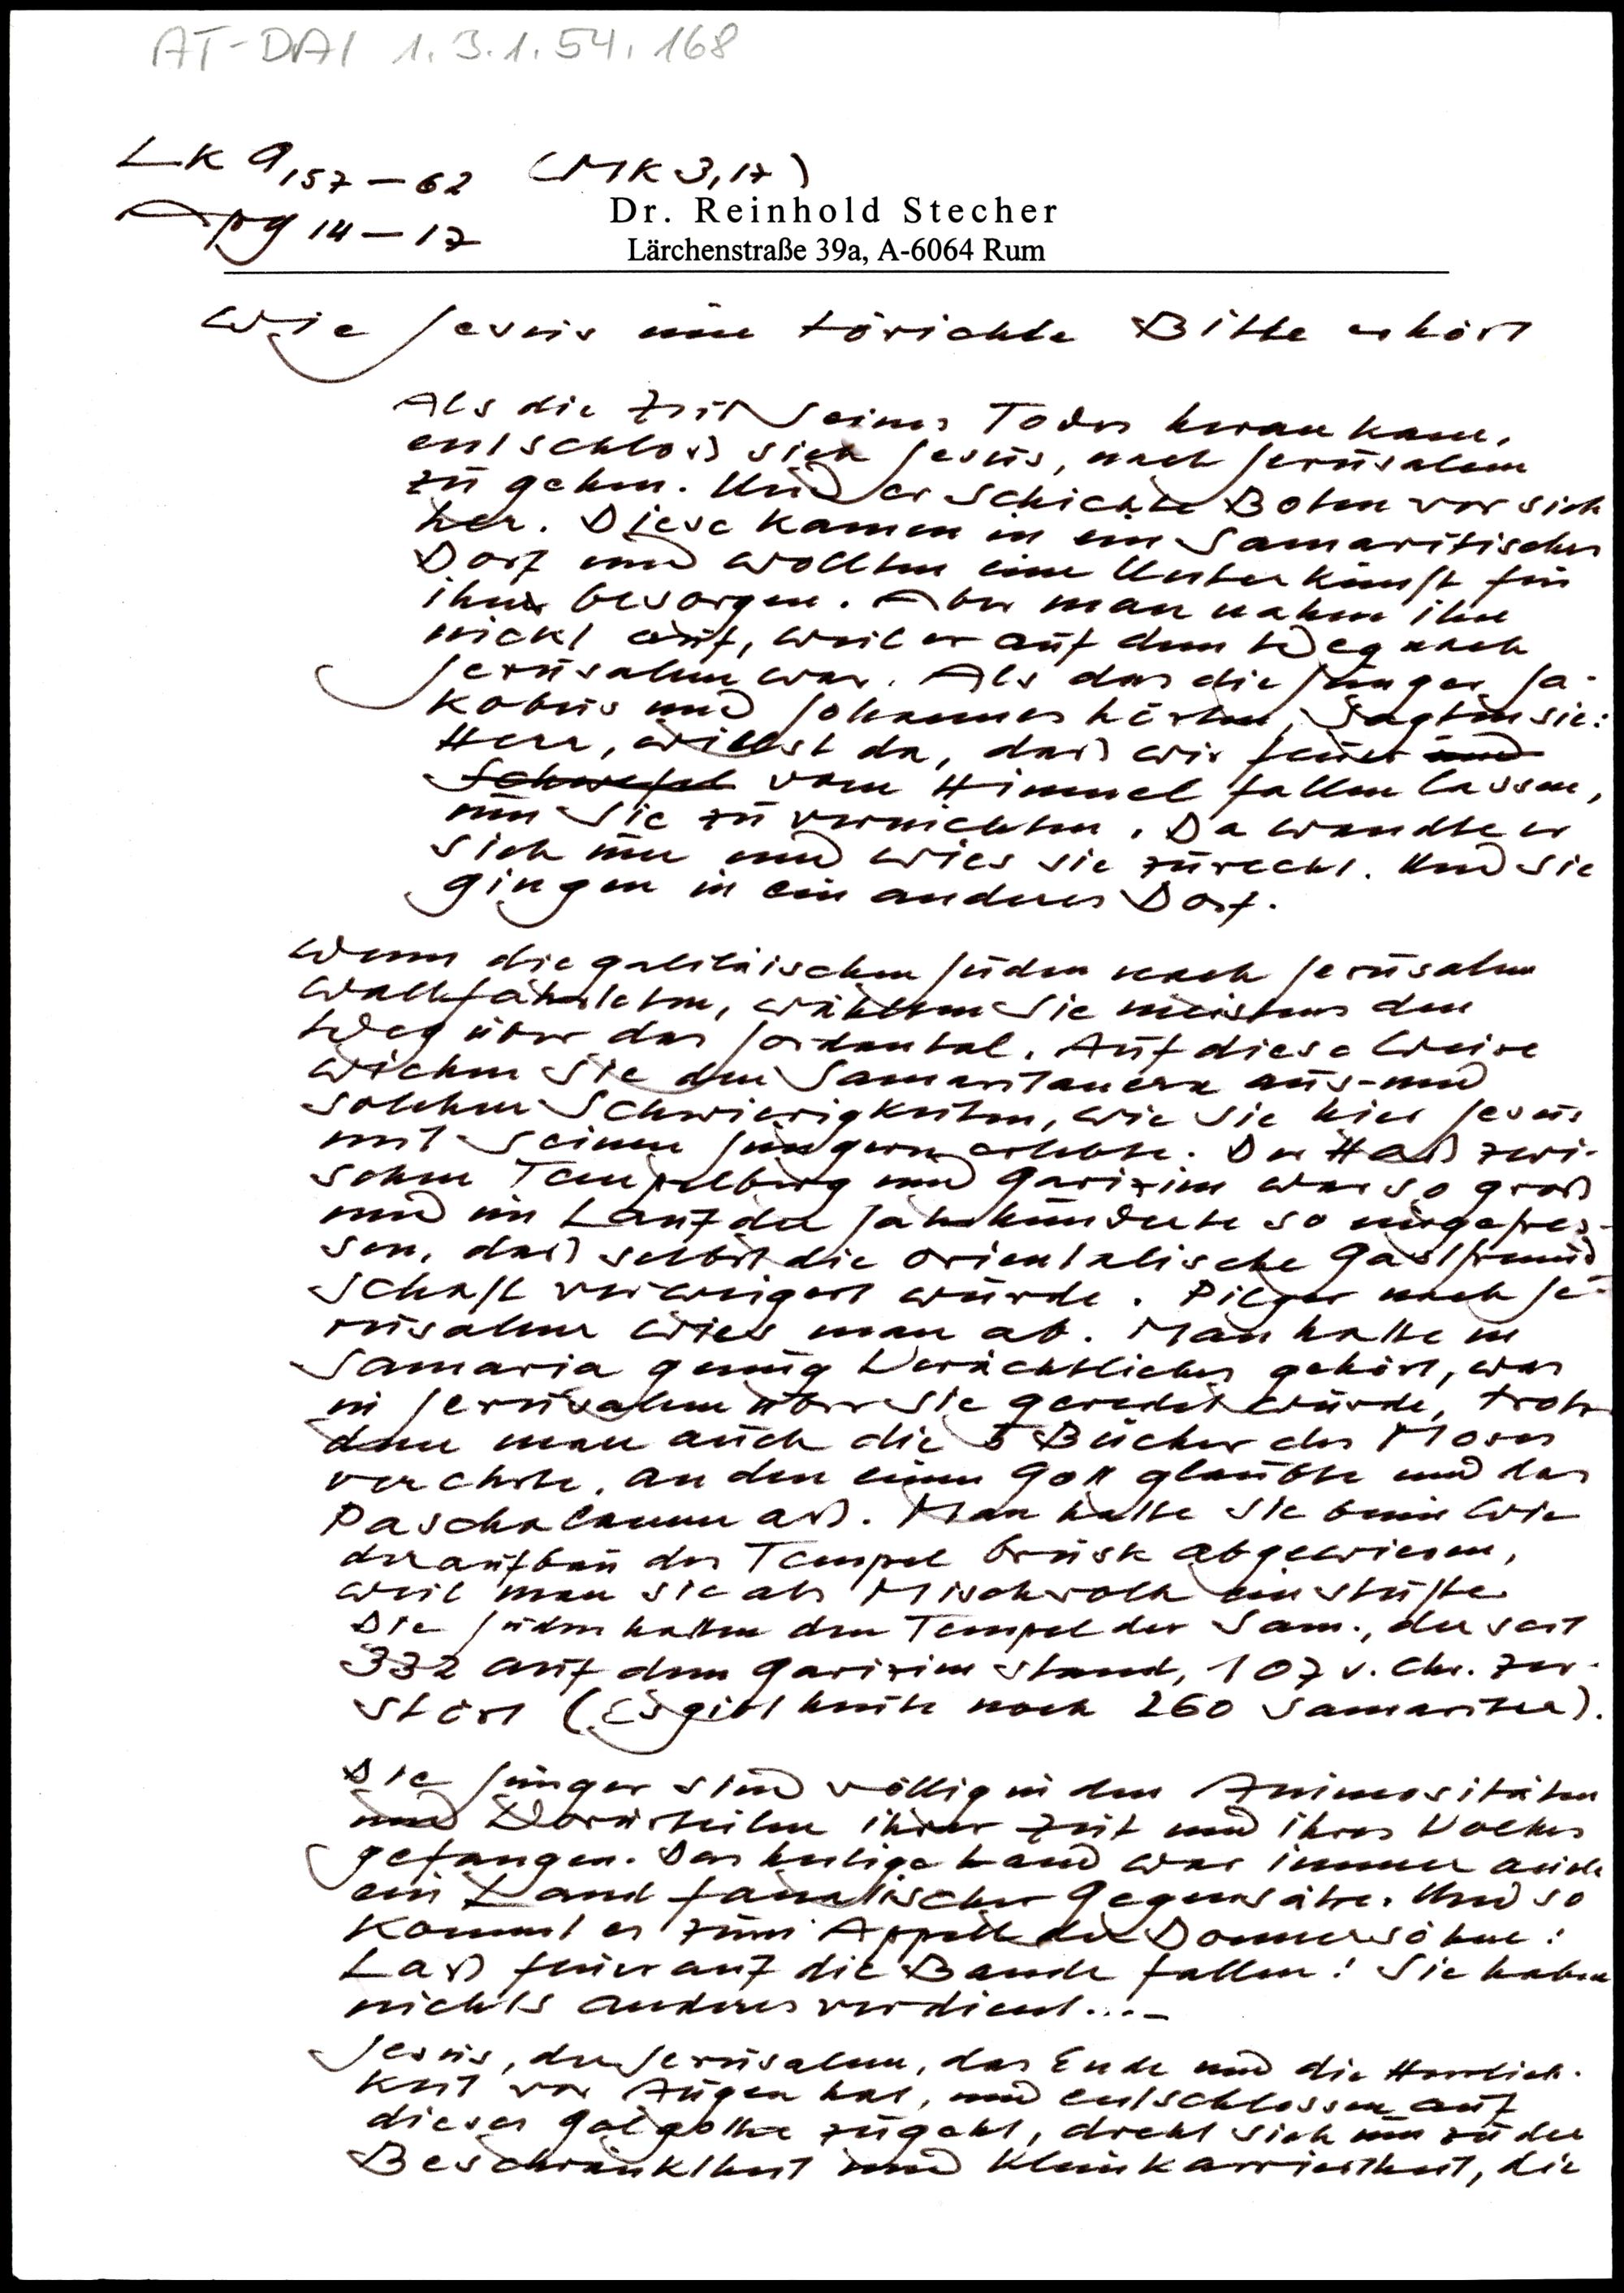 AT-DAI 1.3.1.54.168
Lk 9,57–62 (Mk 3,17)
Apg 14–17
Dr. Reinhold Stecher
Lärchenstraße 39a, A-6064 Rum
Wie Jesus eine törichte Bitte erhört
Als die Zeit seines Todes herankam,
entschloß sich Jesus, nach Jerusalem
zu gehen. Und er schickte Boten vor sich
her. Diese kamen in ein samaritisches
Dorf und wollten eine Unterkunft für
ihn besorgen. Aber man nahm ihn
nicht auf, weil er auf dem Weg nach
Jerusalem war. Als das die Jünger Ja-
kobus und Johannes hörten, sagten sie:
Herr, willst du, daß wir Feuer und
Schwefel vom Himmel fallen lassen,
um sie zu vernichten. Da wandte er
sich um und wies sie zurecht. Und sie
gingen in ein anderes Dorf.
Wenn die galiläischen Juden nach Jerusalem
wallfahrteten, wählten sie meistens den
Weg über das Jordantal. Auf diese Weise
wichen sie den Samaritanern aus - und
solchen Schwierigkeiten, wie sie hier Jesus
mit seinen Jüngern erlebte. Der Haß zwi-
schen Tempelberg und Garizim war so groß
und im Lauf der Jahrhunderte so eingefres-
sen, daß selbst die orientalische Gastfreund-
schaft verweigert wurde. Pilger nach Je-
rusalem wies man ab. Man hatte in
Samaria genug Verächtliches gehört, was
in Jerusalem über sie geredet wurde, trotz
dem man auch die 5 Bücher des Moses
verehrte, an den einen Gott glaubte und das
Paschalamm aß. Man hatte sie beim Wie
deraufbau des Tempel brüsk abgewiesen,
weil man sie als Mischvolk einstufte.
Die Juden hatten den Tempel der Sam., der seit
332 auf dem Garizim stand, 107 v. Chr. zer-
stört (Es gibt heute noch 260 Samariter).
Die Jünger sind völlig in den Animositäten
und Vorurteilen ihrer Zeit und ihres Volkes
gefangen. Das heilige Land war immer auch
ein Land fanatischer Gegensätze. Und so
kommt es zum Appell der Donnersöhne:
Laß Feuer auf die Bande fallen! Sie haben
nichts anderes verdient....
Jesus, der Jerusalem, das Ende und die Herrlich-
keit vor Augen hat, und entschlossen auf
dieses Golgotha zugeht, dreht sich um zu der
Beschränktheit und Kleinkarriertheit, die